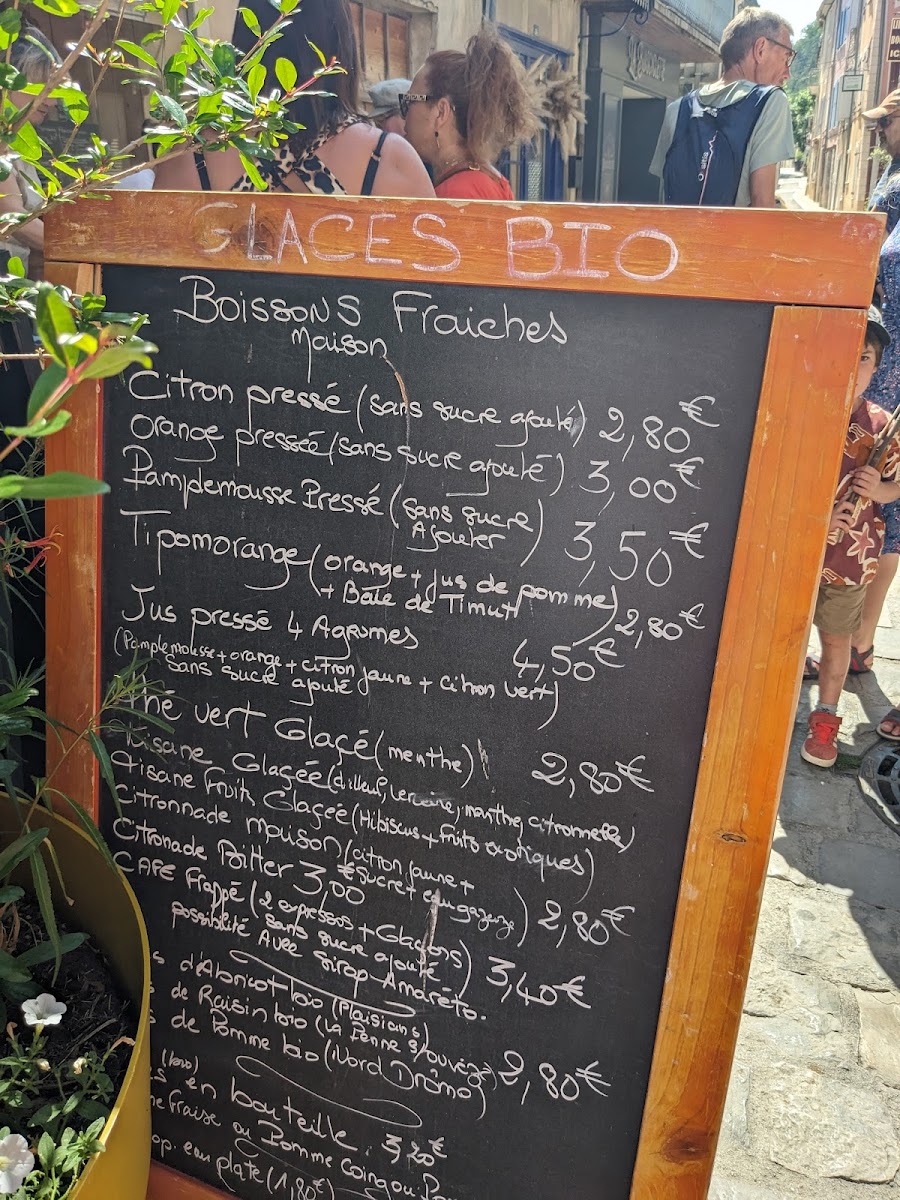 GLACES BIO
Boissons Fraiches
Maison
Citron pressé (sans sucre ajouté) 2,80€
orange pressée (sans sucre ajouté) 3,00€
Pamplemousse Pressé (sans sucre Ajouter) 3,50€
Tipomorange (orange + jus de pomme + Baie de Timut) 2,80€
Jus pressé 4 Agrumes 4,50€
(Pamplemousse + orange + citron jaune + Citron vert)
sans sucre ajouté
thé vert Glaçé (menthe) 2,80€
tisane Glaçée (tilleul, verveine, menthe, citronnelle)
tisane fruits Glaçée (Hibiscus + fruits exotiques)
citronnade maison (citron jaune + sucre + eau gazeuze) 2,80€
Citronade Bitter 3,00€
CAFE Frappé (2 expressos + Glaçons) 3,40€
sans sucre ajouté
possibilité Avec Sirop Amaréto.
d'Abricot bio (Plaisians)
de Raisin bio (La Penne s/ouvèze) 2,80€
de Pomme bio (Nord Drôme)
en bouteille
fraise ou Pomme Coing ou
eau plate (1,80€)